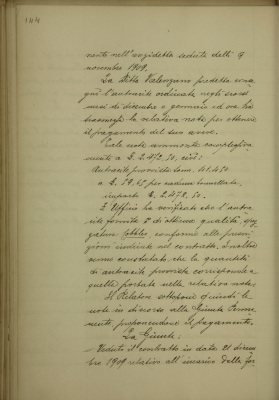 144
nente nell'anzidetta seduta delli 9
novembre 1909.
La Ditta Valenzano predetta
l'antracite ordinata negli scorsi
mesi di dicembre e gennaio ed ora ha
la relativa nota per ottenere
il pagamento del suo avere.
Tale nota ammonta complessiva
mente a £. 2.478,50, cioè:
Antracite provvista Tonn.
a £. 59,65 per caduna tonnellata,
importa £. 2.478,50.
L'Ufficio ha verificato che l'antra
cite fornita è di ottima qualità,
Cobbles, conforme alle prescri
zioni indicate nel contratto. Inoltre
venne constatato che la quantità
di antracite provvista corrisponde a
quella portata nella relativa nota.
Il Relatore sottopone quindi la
nota in discorso alla Giunta Perma
nente, proponendone il pagamento.
La Giunta,
Veduto il contratto in data 21 dicem
bre 1909 relativo all'incarico della for